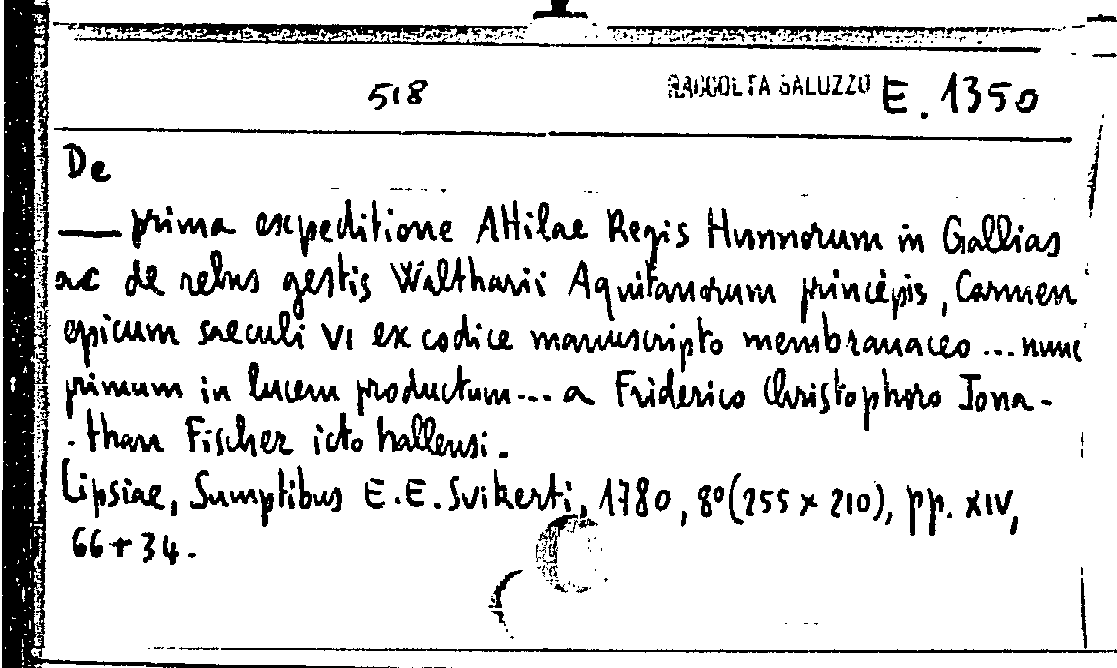 518 RACCOLTA SALUZZO E. 1350
De
— prima expeditione Attilae Regis Hunnorum in Gallias
ac de rebus gestis Waltharii Aquitanorum principis, Carmen
epicum saeculi VI ex codice manuscripto membranaceo ... nunc
primum in lucem productum ... a Friderico Christophoro Jona-
-than Fischer icto hallensi.
Lipsiae, Sumptibus E.E. Svikerti, 1780, 8º (255 x 210), pp. XIV,
66 + 34.